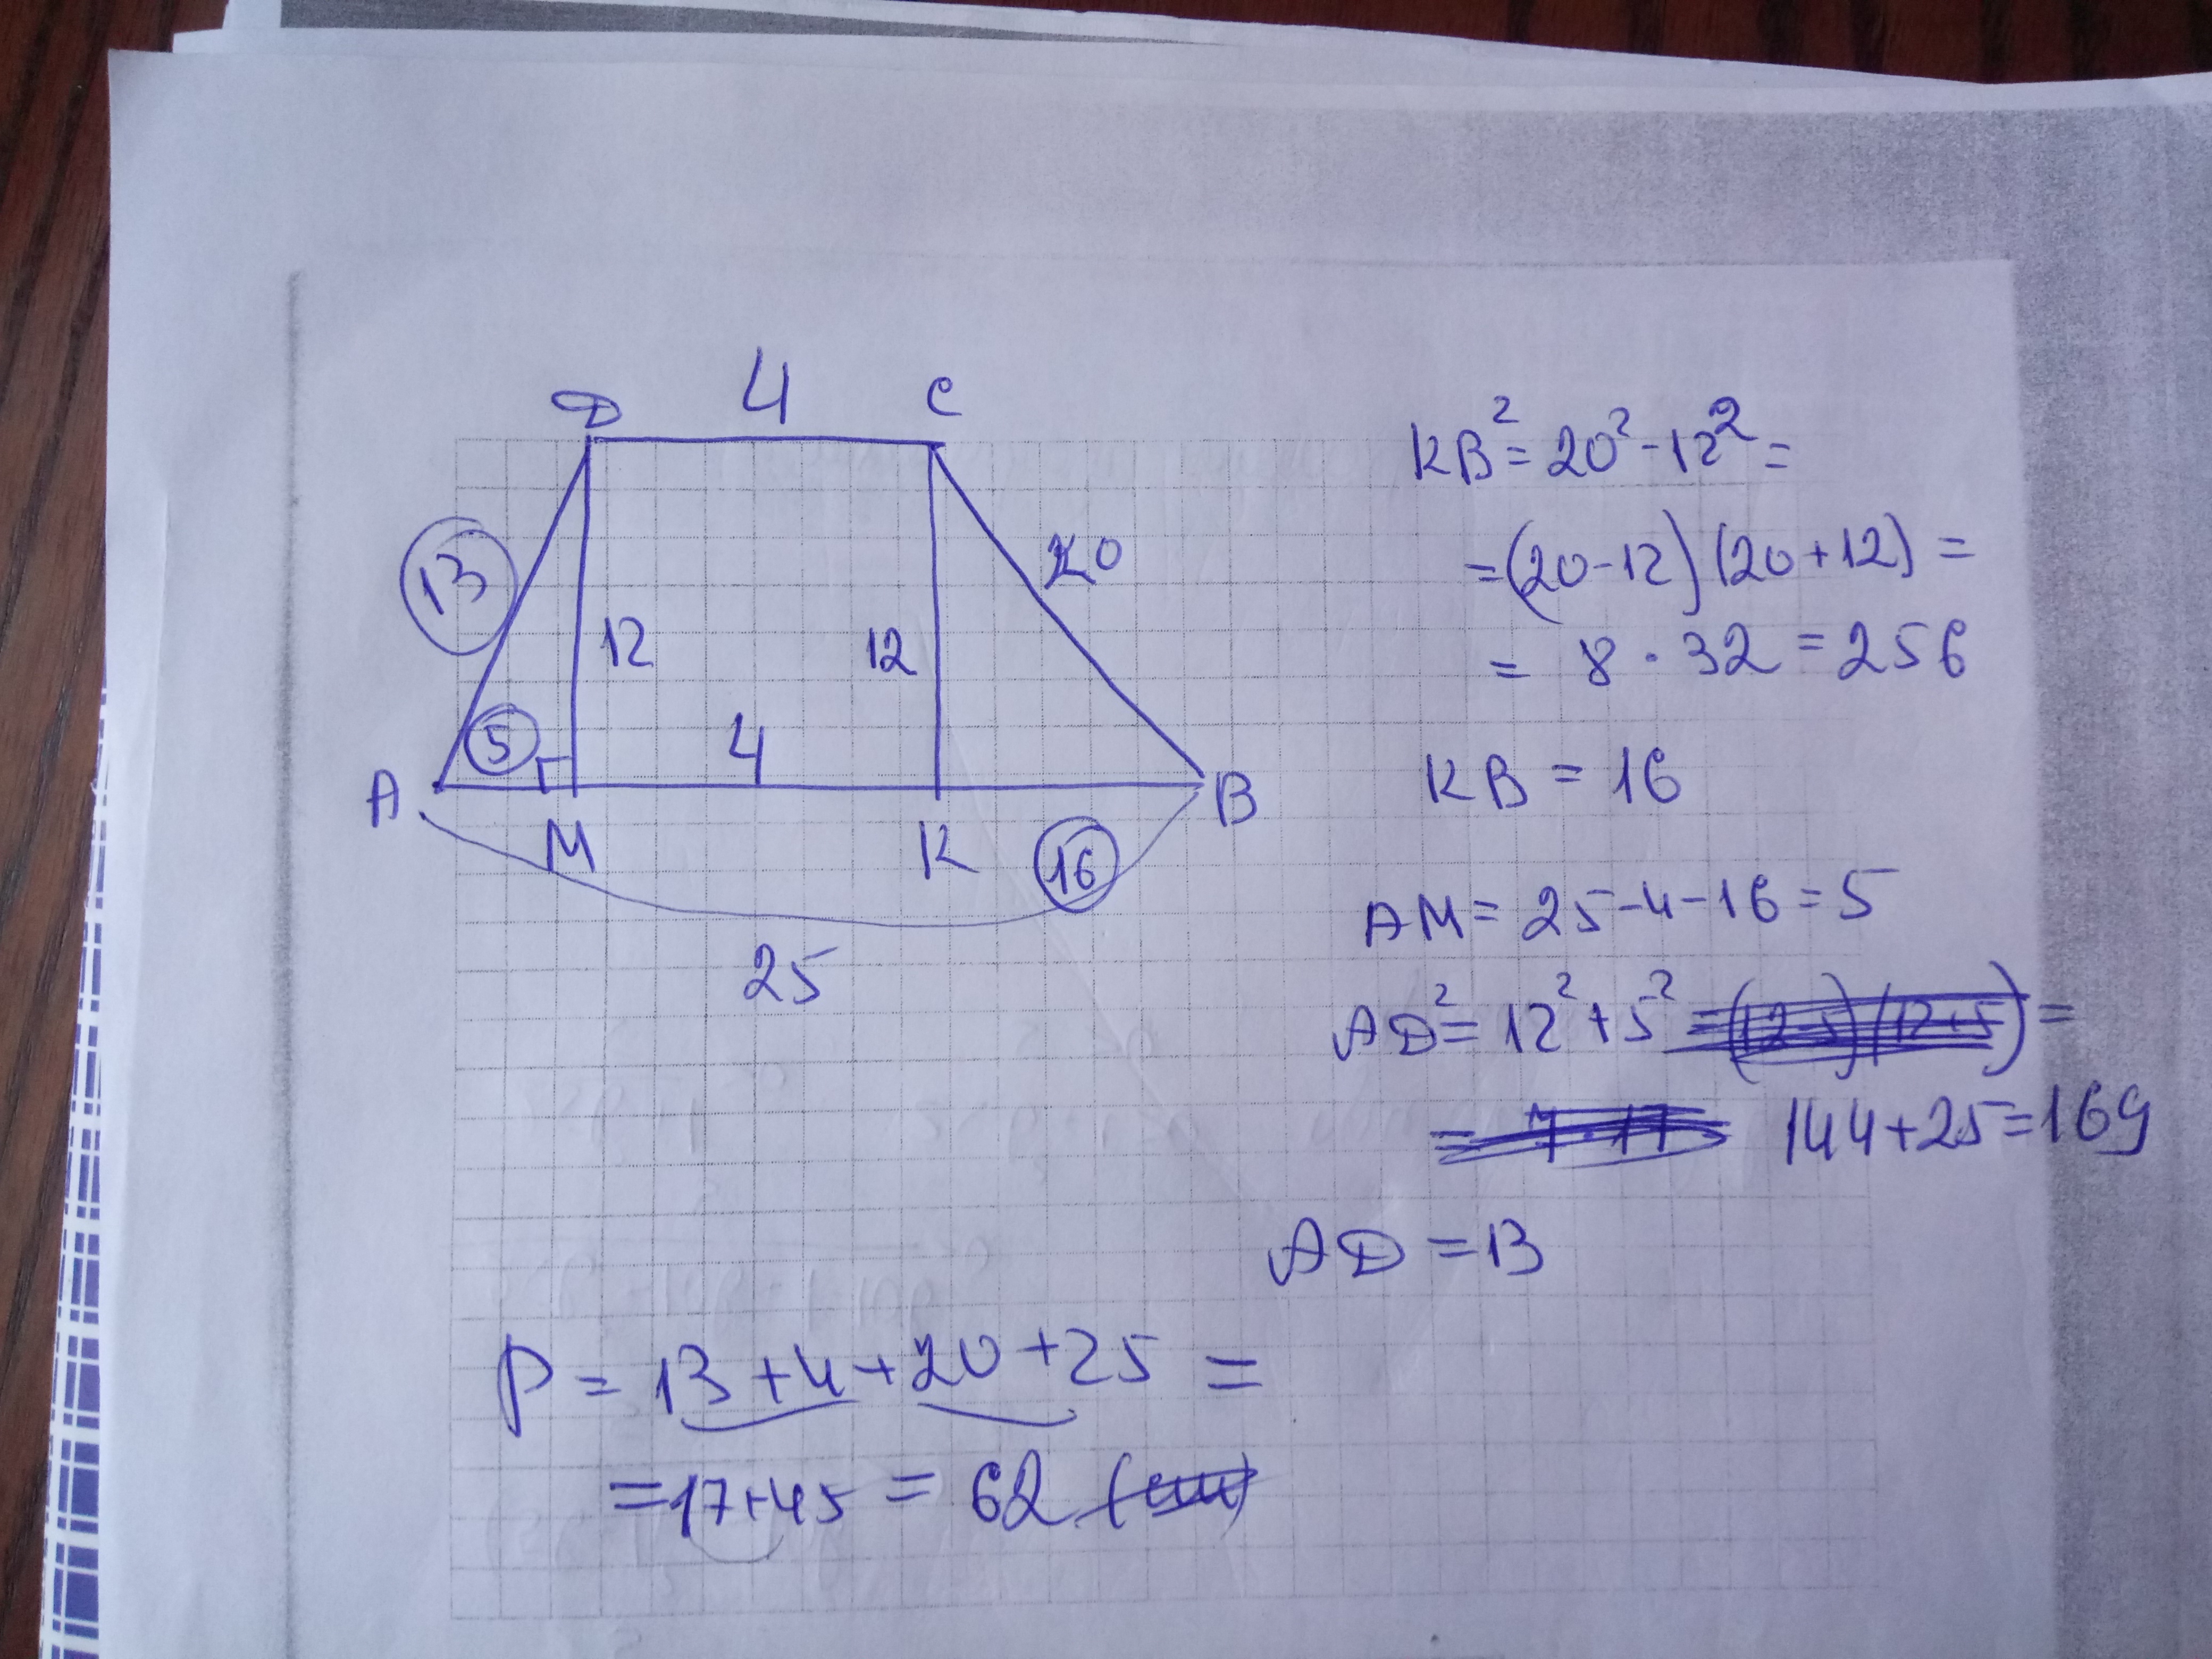 D 4 C
13
20
12
12
5
4
A
B
M
K
16
25
KB² = 20² - 12² =
= (20 - 12) (20 + 12) =
= 8 · 32 = 256
KB = 16
AM = 25 - 4 - 16 = 5
AD² = 12² + 5² = (12-5) (12+5) =
= 7 · 17 144 + 25 = 169
AD = 13
P = 13 + 4 + 20 + 25 =
= 17 + 45 = 62